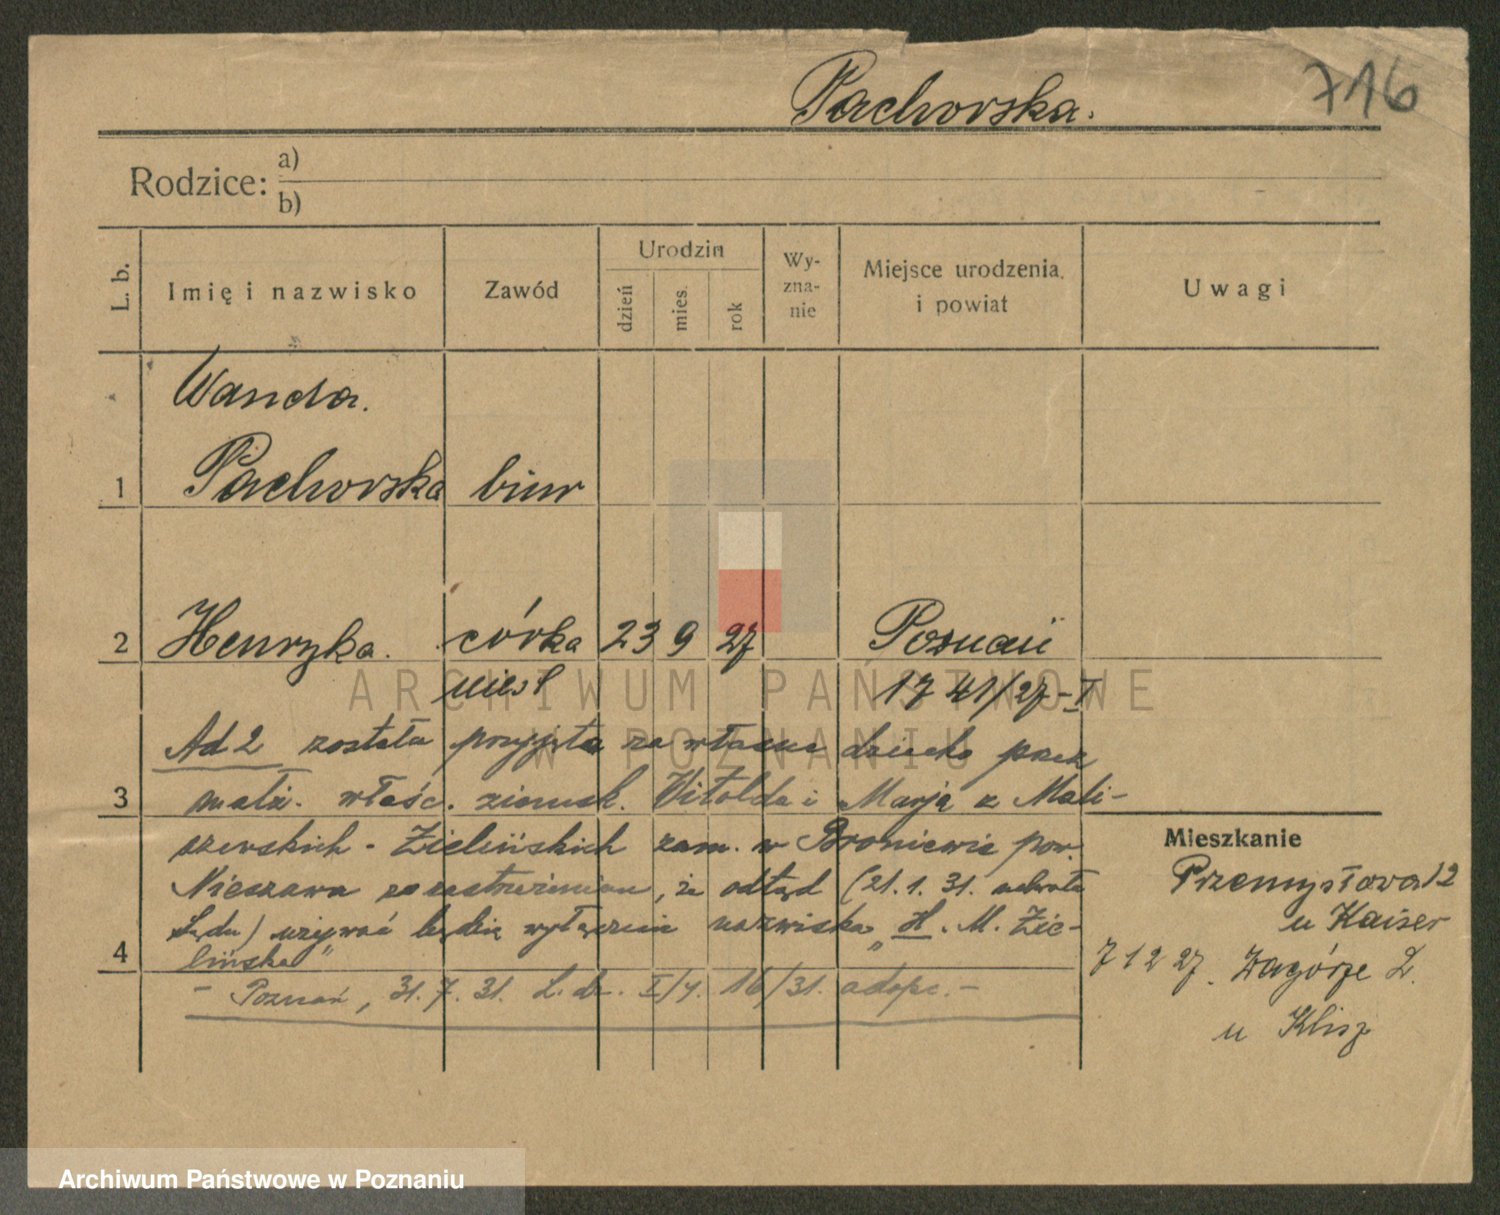 Pachorska.
716
Rodzice:
a)
b)
L. b.
Imię i nazwisko
Zawód
Urodzin
dzień
mies.
rok
Wy-
zna-
nie
Miejsce urodzenia
i powiat
Uwagi
Wanda.
1 Pachorska biur
2 Henryka. córka 23 9 27 Poznań
nieśl 1741/27-I
Ad 2 została przyjęta za własne dziecko przez
3 małż. właśc. ziemsk. Witolda i Marja z Mali-
szewskich - Zielińskich zam. w Broniewie pow.
Nieszawa z zastrzeżeniem, że odtąd (21.1.31. uchwała
Sądu) używać będzie wyłącznie nazwiska „H. M. Zie-
4 lińska"
- Poznań, 31.7.31. L. dz. I/4. 16/31. adopc. -
Mieszkanie
Przemysłowa 12
u Kaiser
7 12 27. Zagórze 2.
u Klisz
ARCHIWUM PAŃSTWOWE
W POZNANIU
Archiwum Państwowe w Poznaniu